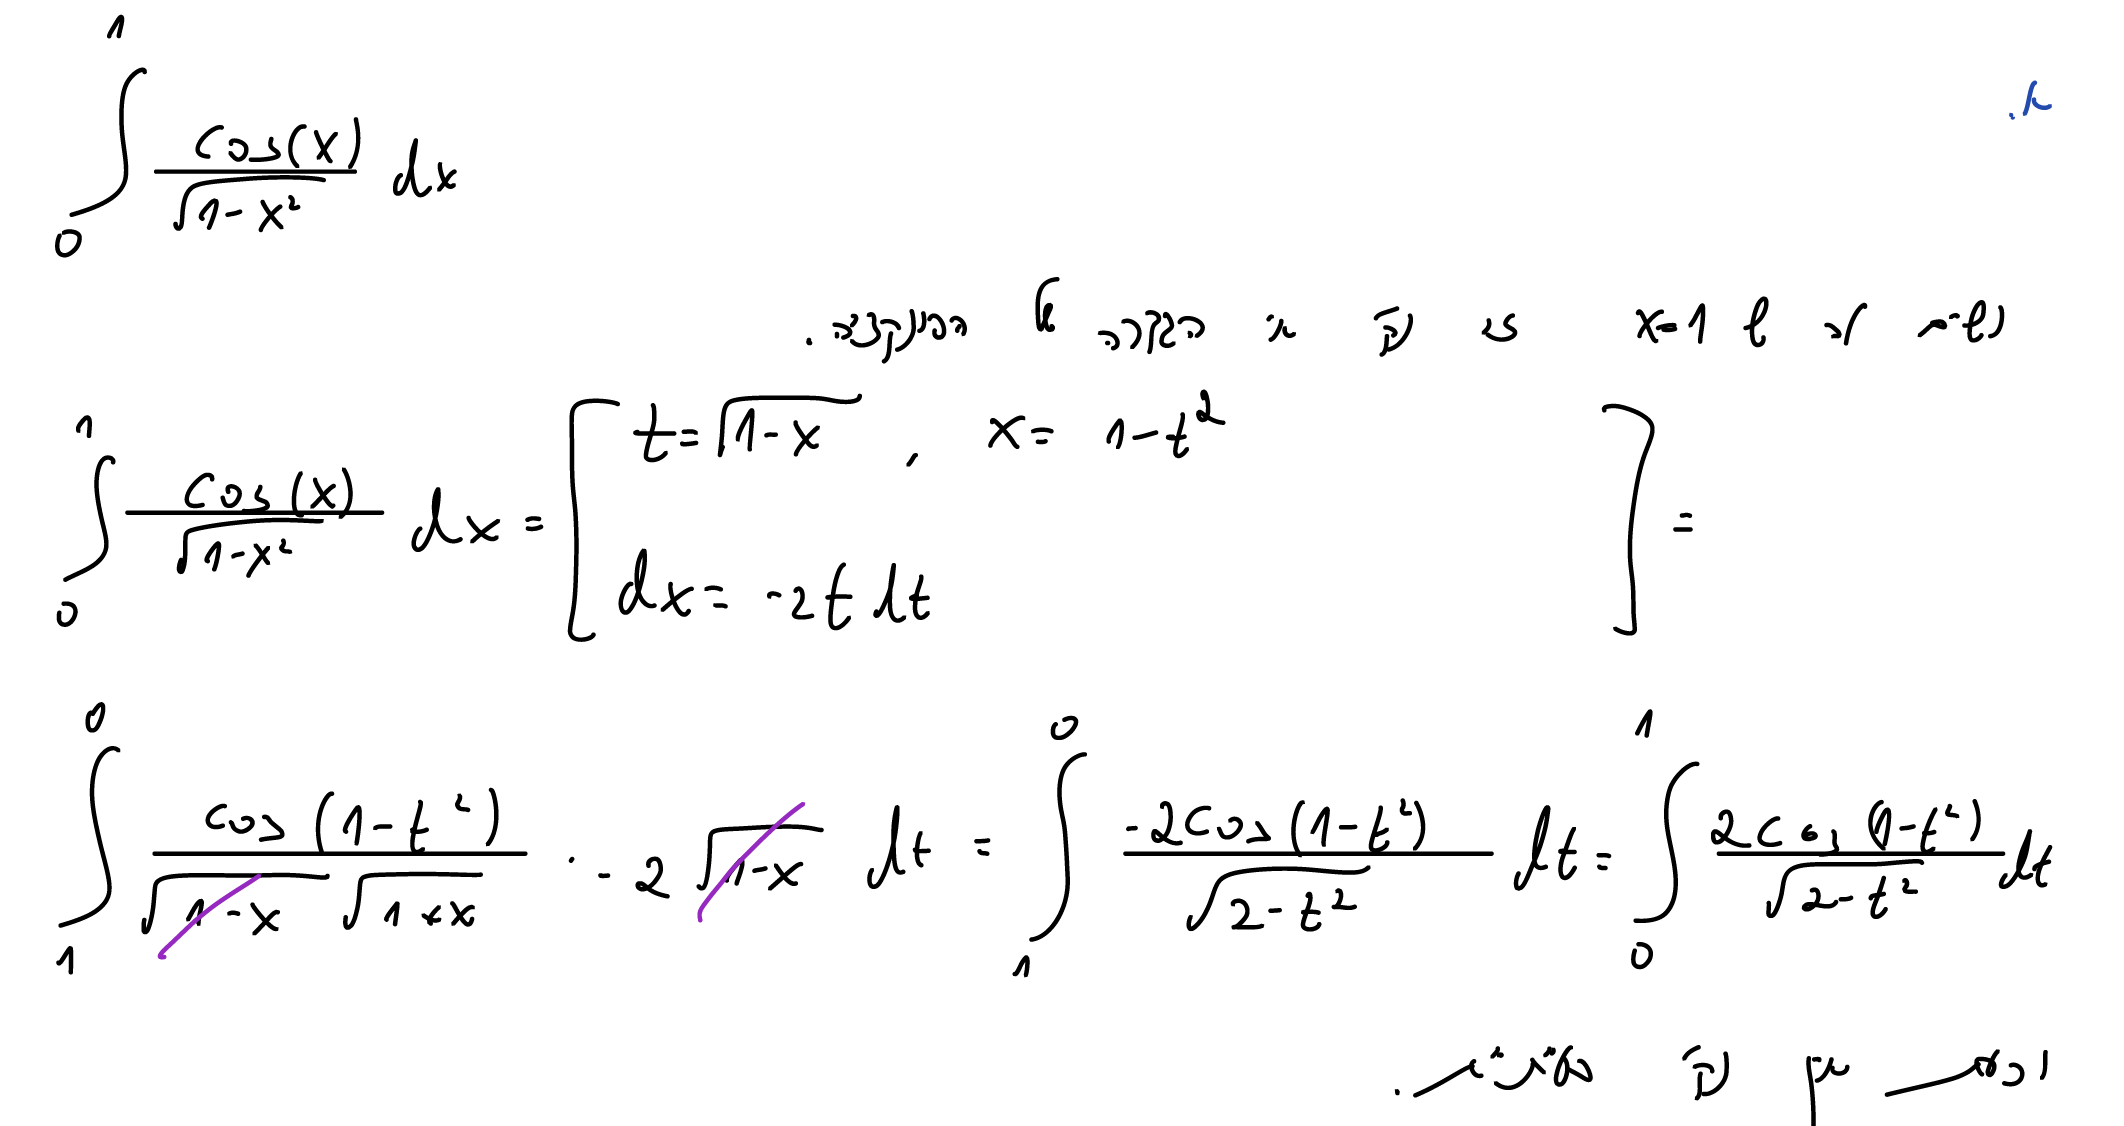 א.
∫₀¹ cos(x)/√(1-x²) dx
נשים לב ש x=1 זו נק' אי הגדרה של הפונקציה.
∫₀¹ cos(x)/√(1-x²) dx = [ t=√(1-x) , x= 1-t²
dx= -2t dt ] =
∫₁⁰ cos(1-t²)/(√(1-x) √(1+x)) · -2 √(1-x) dt = ∫₁⁰ -2cos(1-t²)/√(2-t²) dt = ∫₀¹ 2cos(1-t²)/√(2-t²) dt
וכעת אין נק'